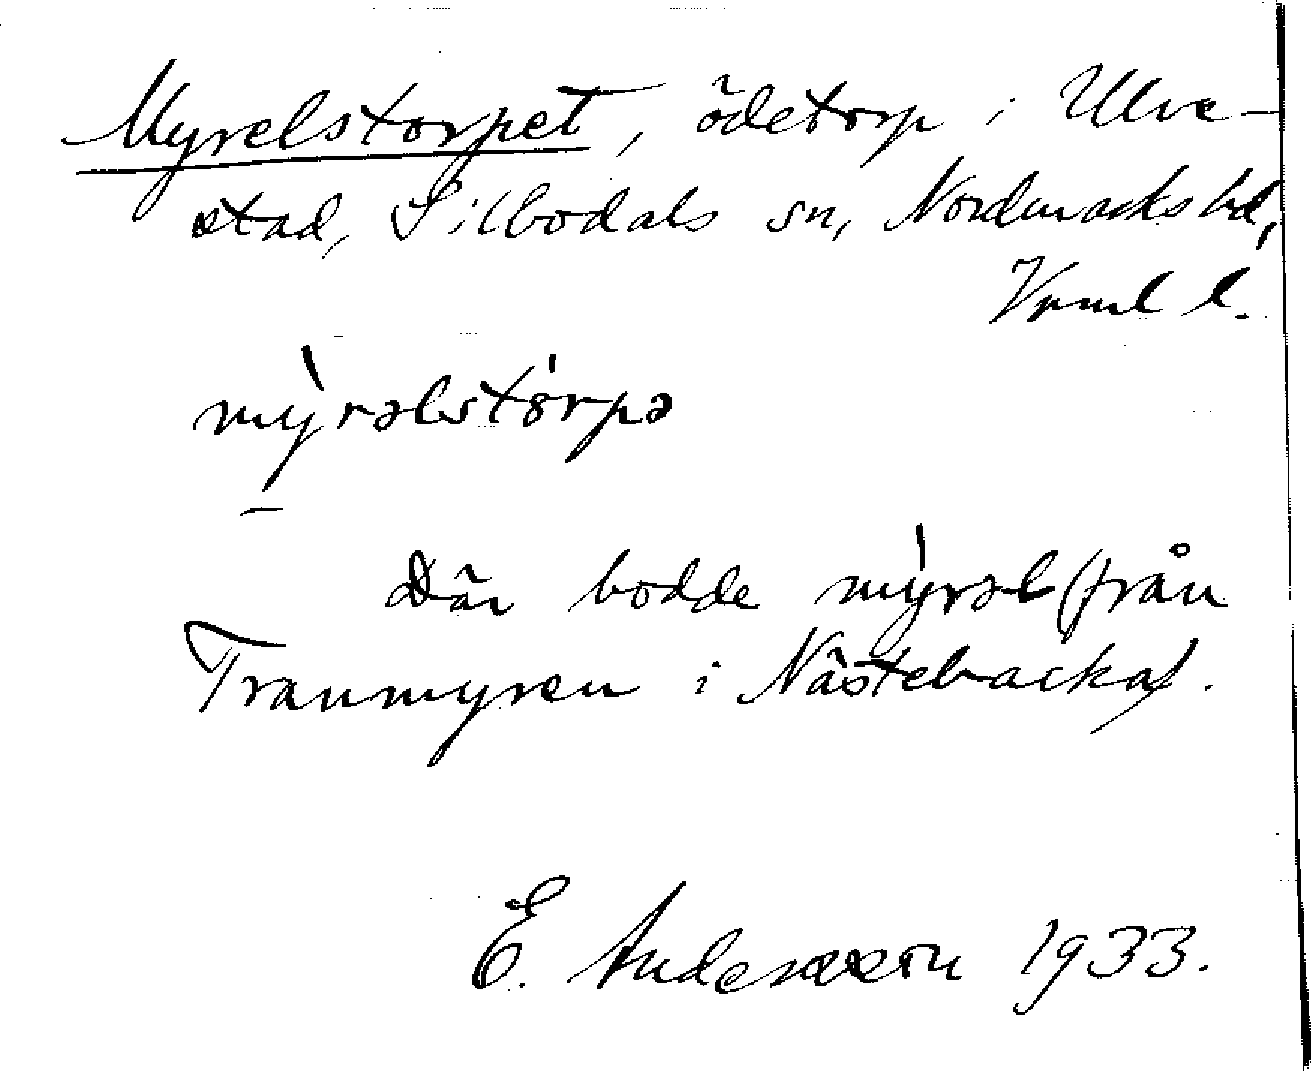 Myrelstorpet, ödetorp i Ulve-
stad, Silbodals sn, Nordmarks hd,
Vrml l.
my̍rəlstörpə
Där bodde my̍rəl (från
Tranmyren i Nästebacka).
E. Andersson 1933.